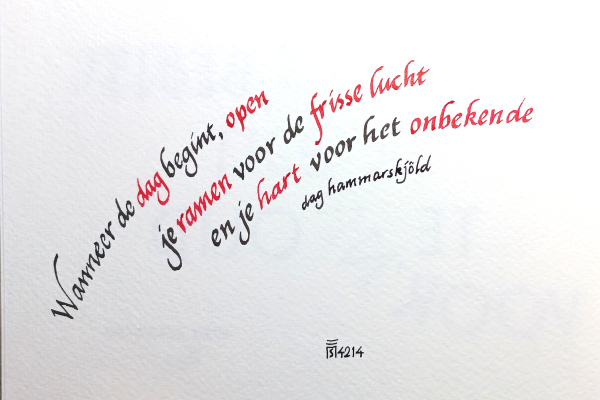 Wanneer de dag begint, open
je ramen voor de frisse lucht
en je hart voor het onbekende
dag hammarskjöld
4214